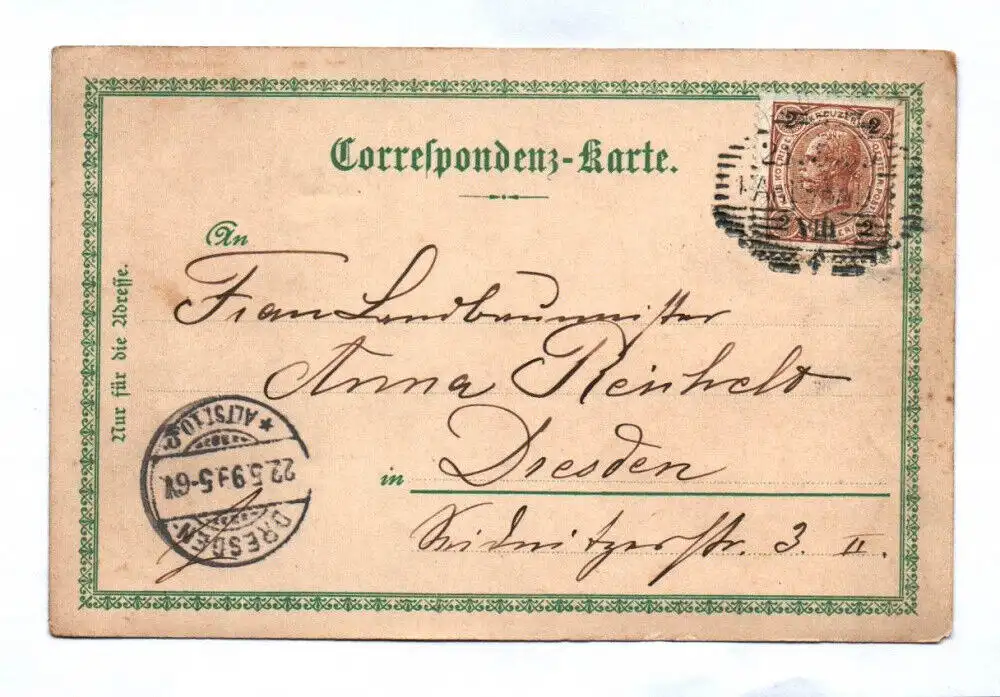 Correspondenz-Karte.
An
Frau Landbaumeister
Anna Reinhelt
in Dresden
Seidnitzerstr. 3. II.
Nur für die Adresse.
DRESDEN
ALTST. 10.
22.5.9 5-6V.
2 KREUZER 2
2 VIII 2